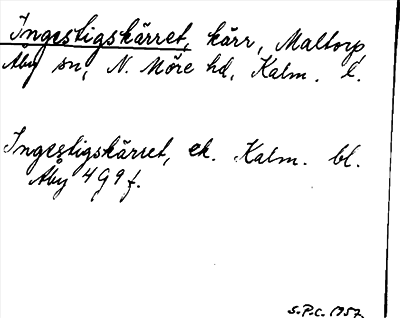 Ingestigskärret, kärr, Maltorp,
Åby sn, N. Möre hd, Kalm. l.
Ingestigskärret, ek. Kalm. bl.
Åby 4 G 9 f.
S.P.C. 1957